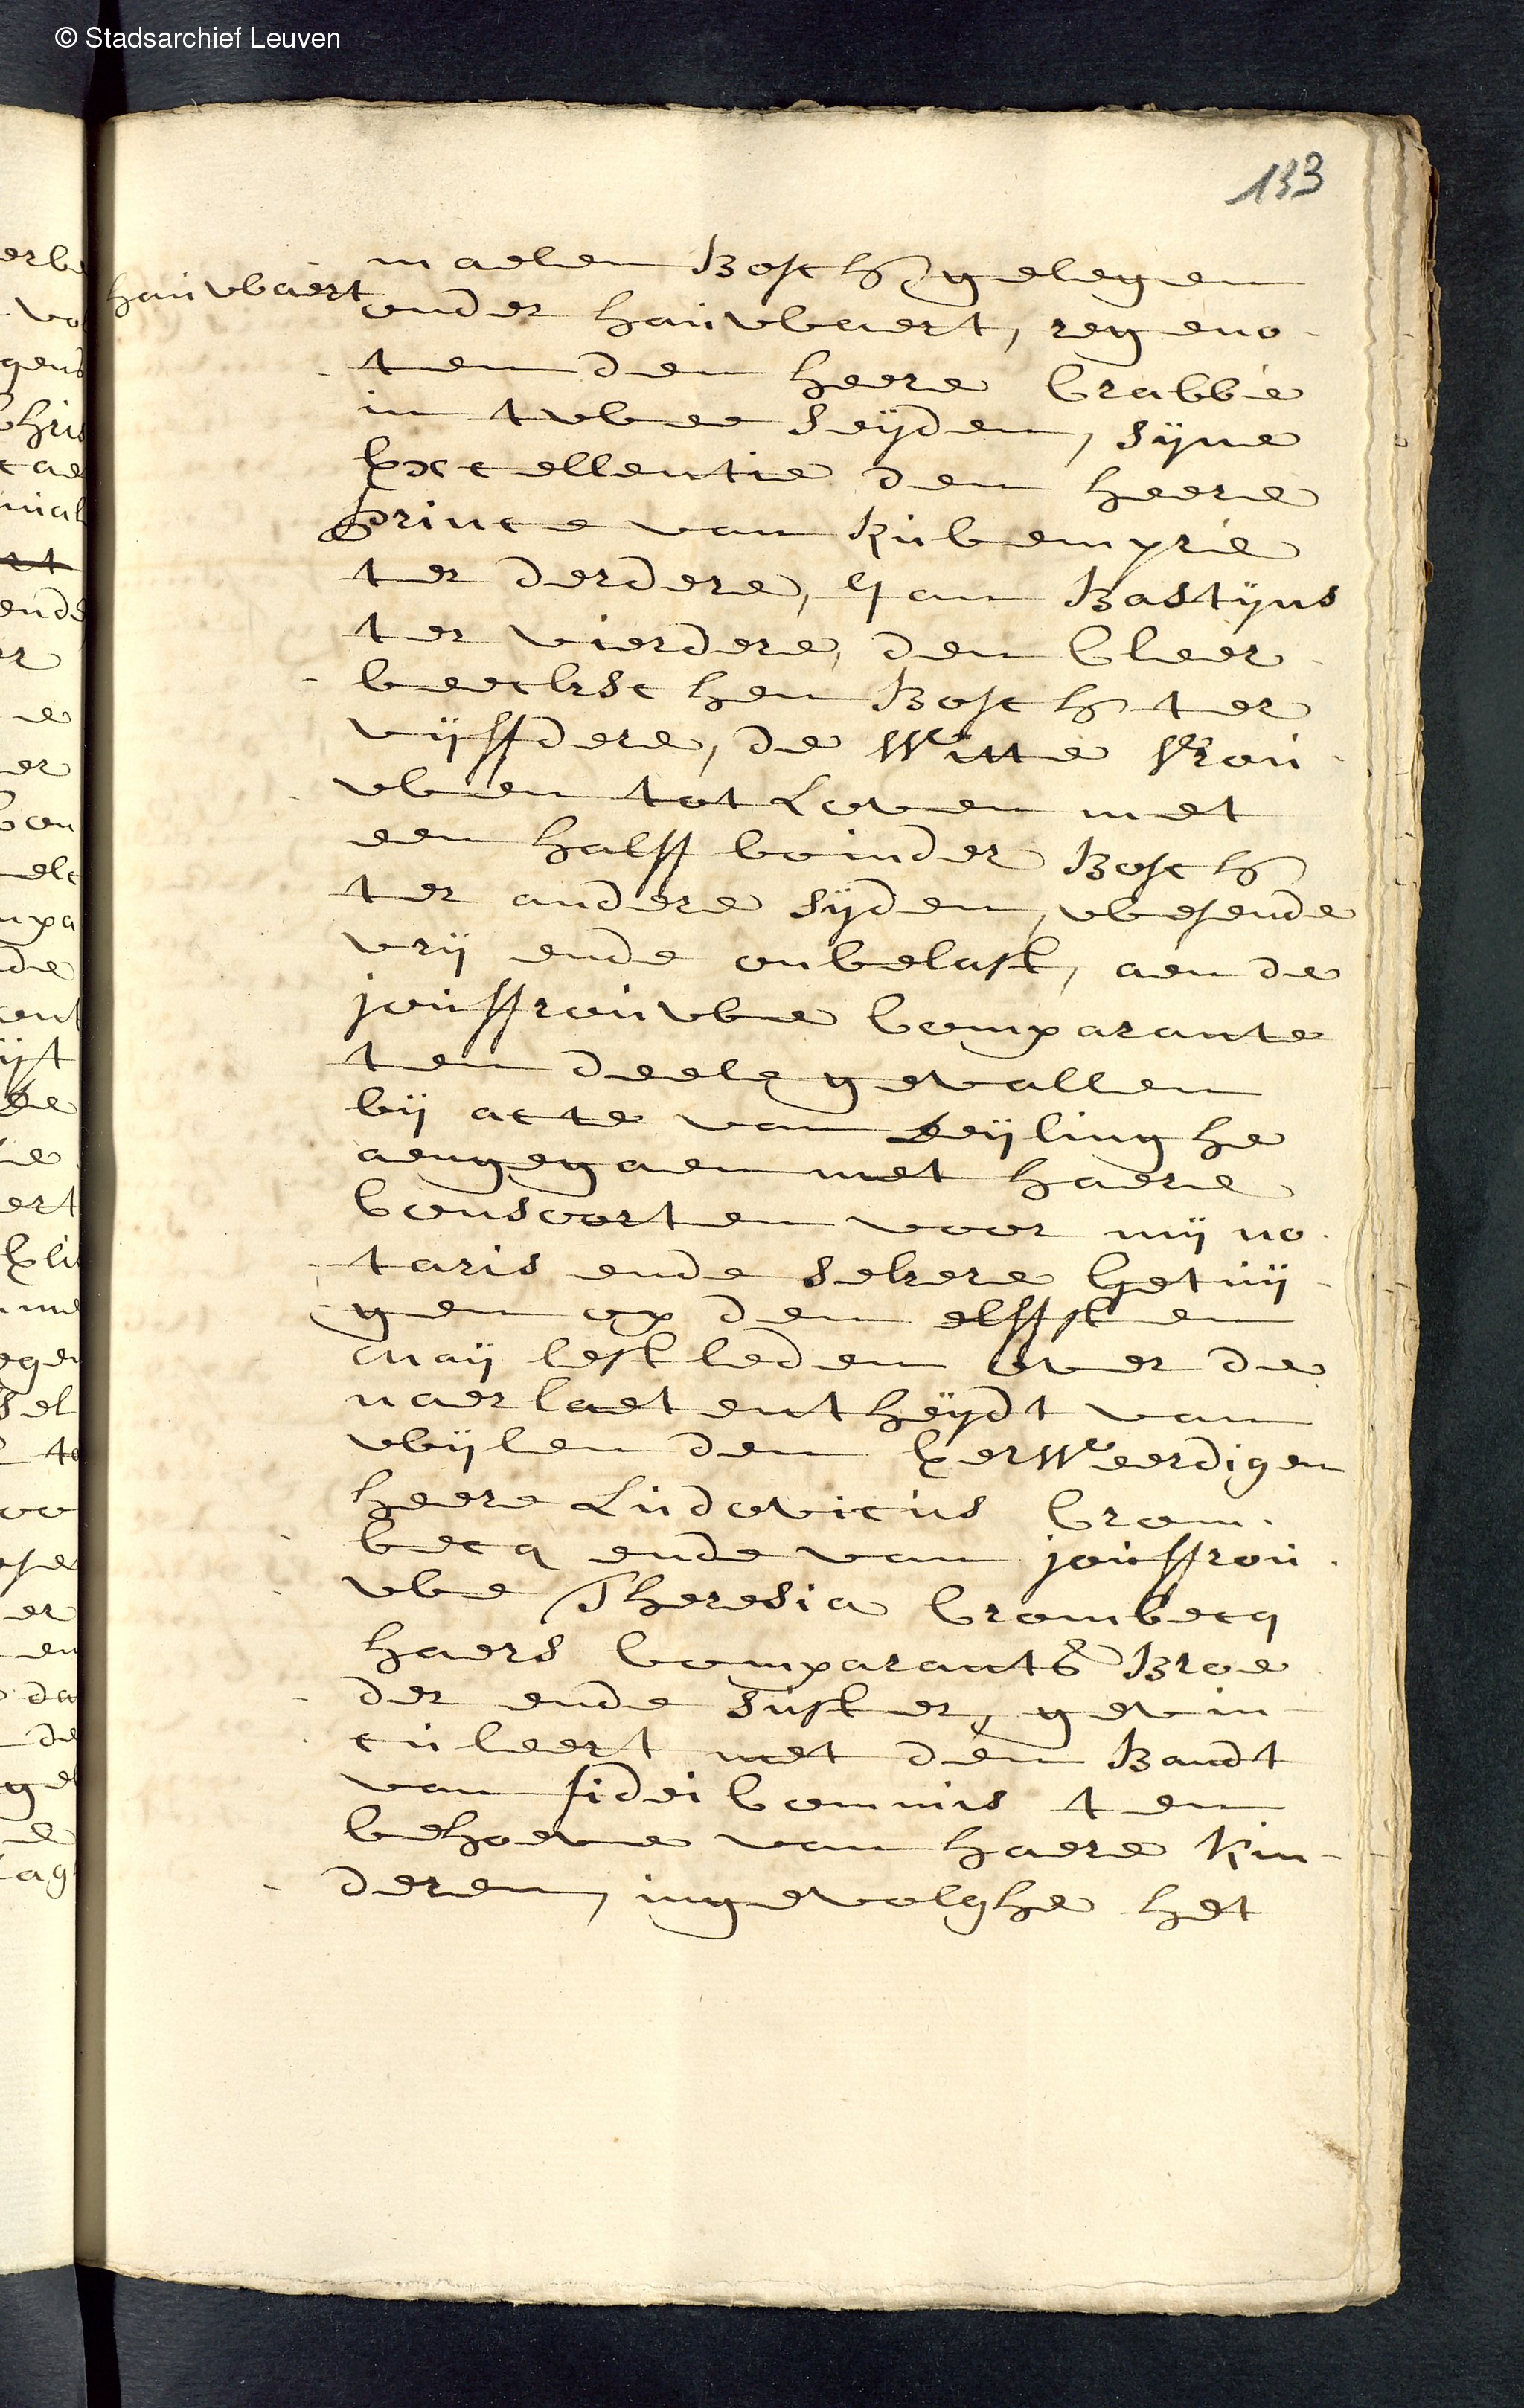 © Stadsarchief Leuven
133
hauwaert
maelen Bosch gelegen
onder hauwaert, regeno-
ten den heere Crabbé
in twee seijden, sijne
Excellentie den heere
Prince van Rubempré
ter derdere, Jan Bastijns
ter vierdere, den Cleer-
beeckschen Bosch ter
vijffdere, de Witte Vrou-
wen tot Loven met
een halff boinder Bosch
ter andere sijden, wesende
vrij ende onbelast, aen de
jouffrouwe Comparante
ten deele gevallen
bij acte van deijlinghe
aengegaen met haere
Consoorten voor mij no-
taris ende sekere getuij-
gen op den elffsten
maij lestleden over de
naerlaetentheijdt van
wijlen den Eerweerdigen
heere Ludovicus Crom-
becq ende van jouffrou-
we Theresia Crombecq
haers Comparants Broe
der ende suster, gevin-
culeert met den Bandt
van fidei Commis ten
behoeve van haere Kin-
deren, ingevolghe het